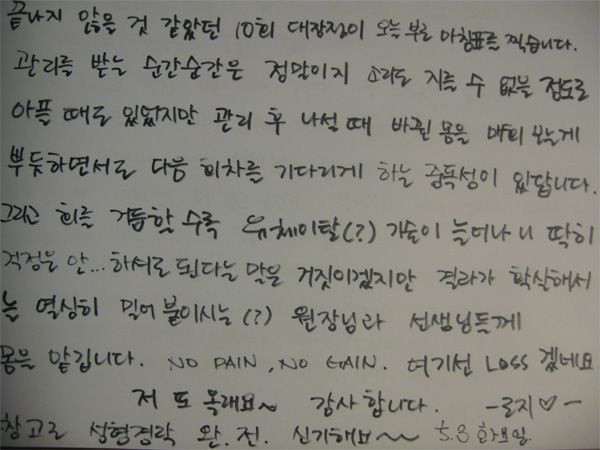 끝나지 않을 것 같았던 10회 대장정이 오늘 부로 마침표를 찍습니다.
관리를 받는 순간순간은 정말이지 소리도 지를 수 없을 정도로
아플 때도 있었지만 관리 후 나설 때 바뀐 몸을 매회 보는게
뿌듯하면서도 다음 회차를 기다리게 하는 중독성이 있답니다.
그리고 회를 거듭할 수록 유체이탈(?) 기술이 늘어나니 딱히
걱정은 안... 하셔도 된다는 말은 거짓이겠지만 결과가 확실해서
늘 열심히 밀어붙이시는(?) 원장님과 선생님들께
몸을 맡깁니다. NO PAIN, NO GAIN. 여기선 LOSS 겠네요
저 또 올래요~ 감사합니다. -로지♡-
참고로 성형경락 완.전. 신기해요~~ 5.3 화요일.